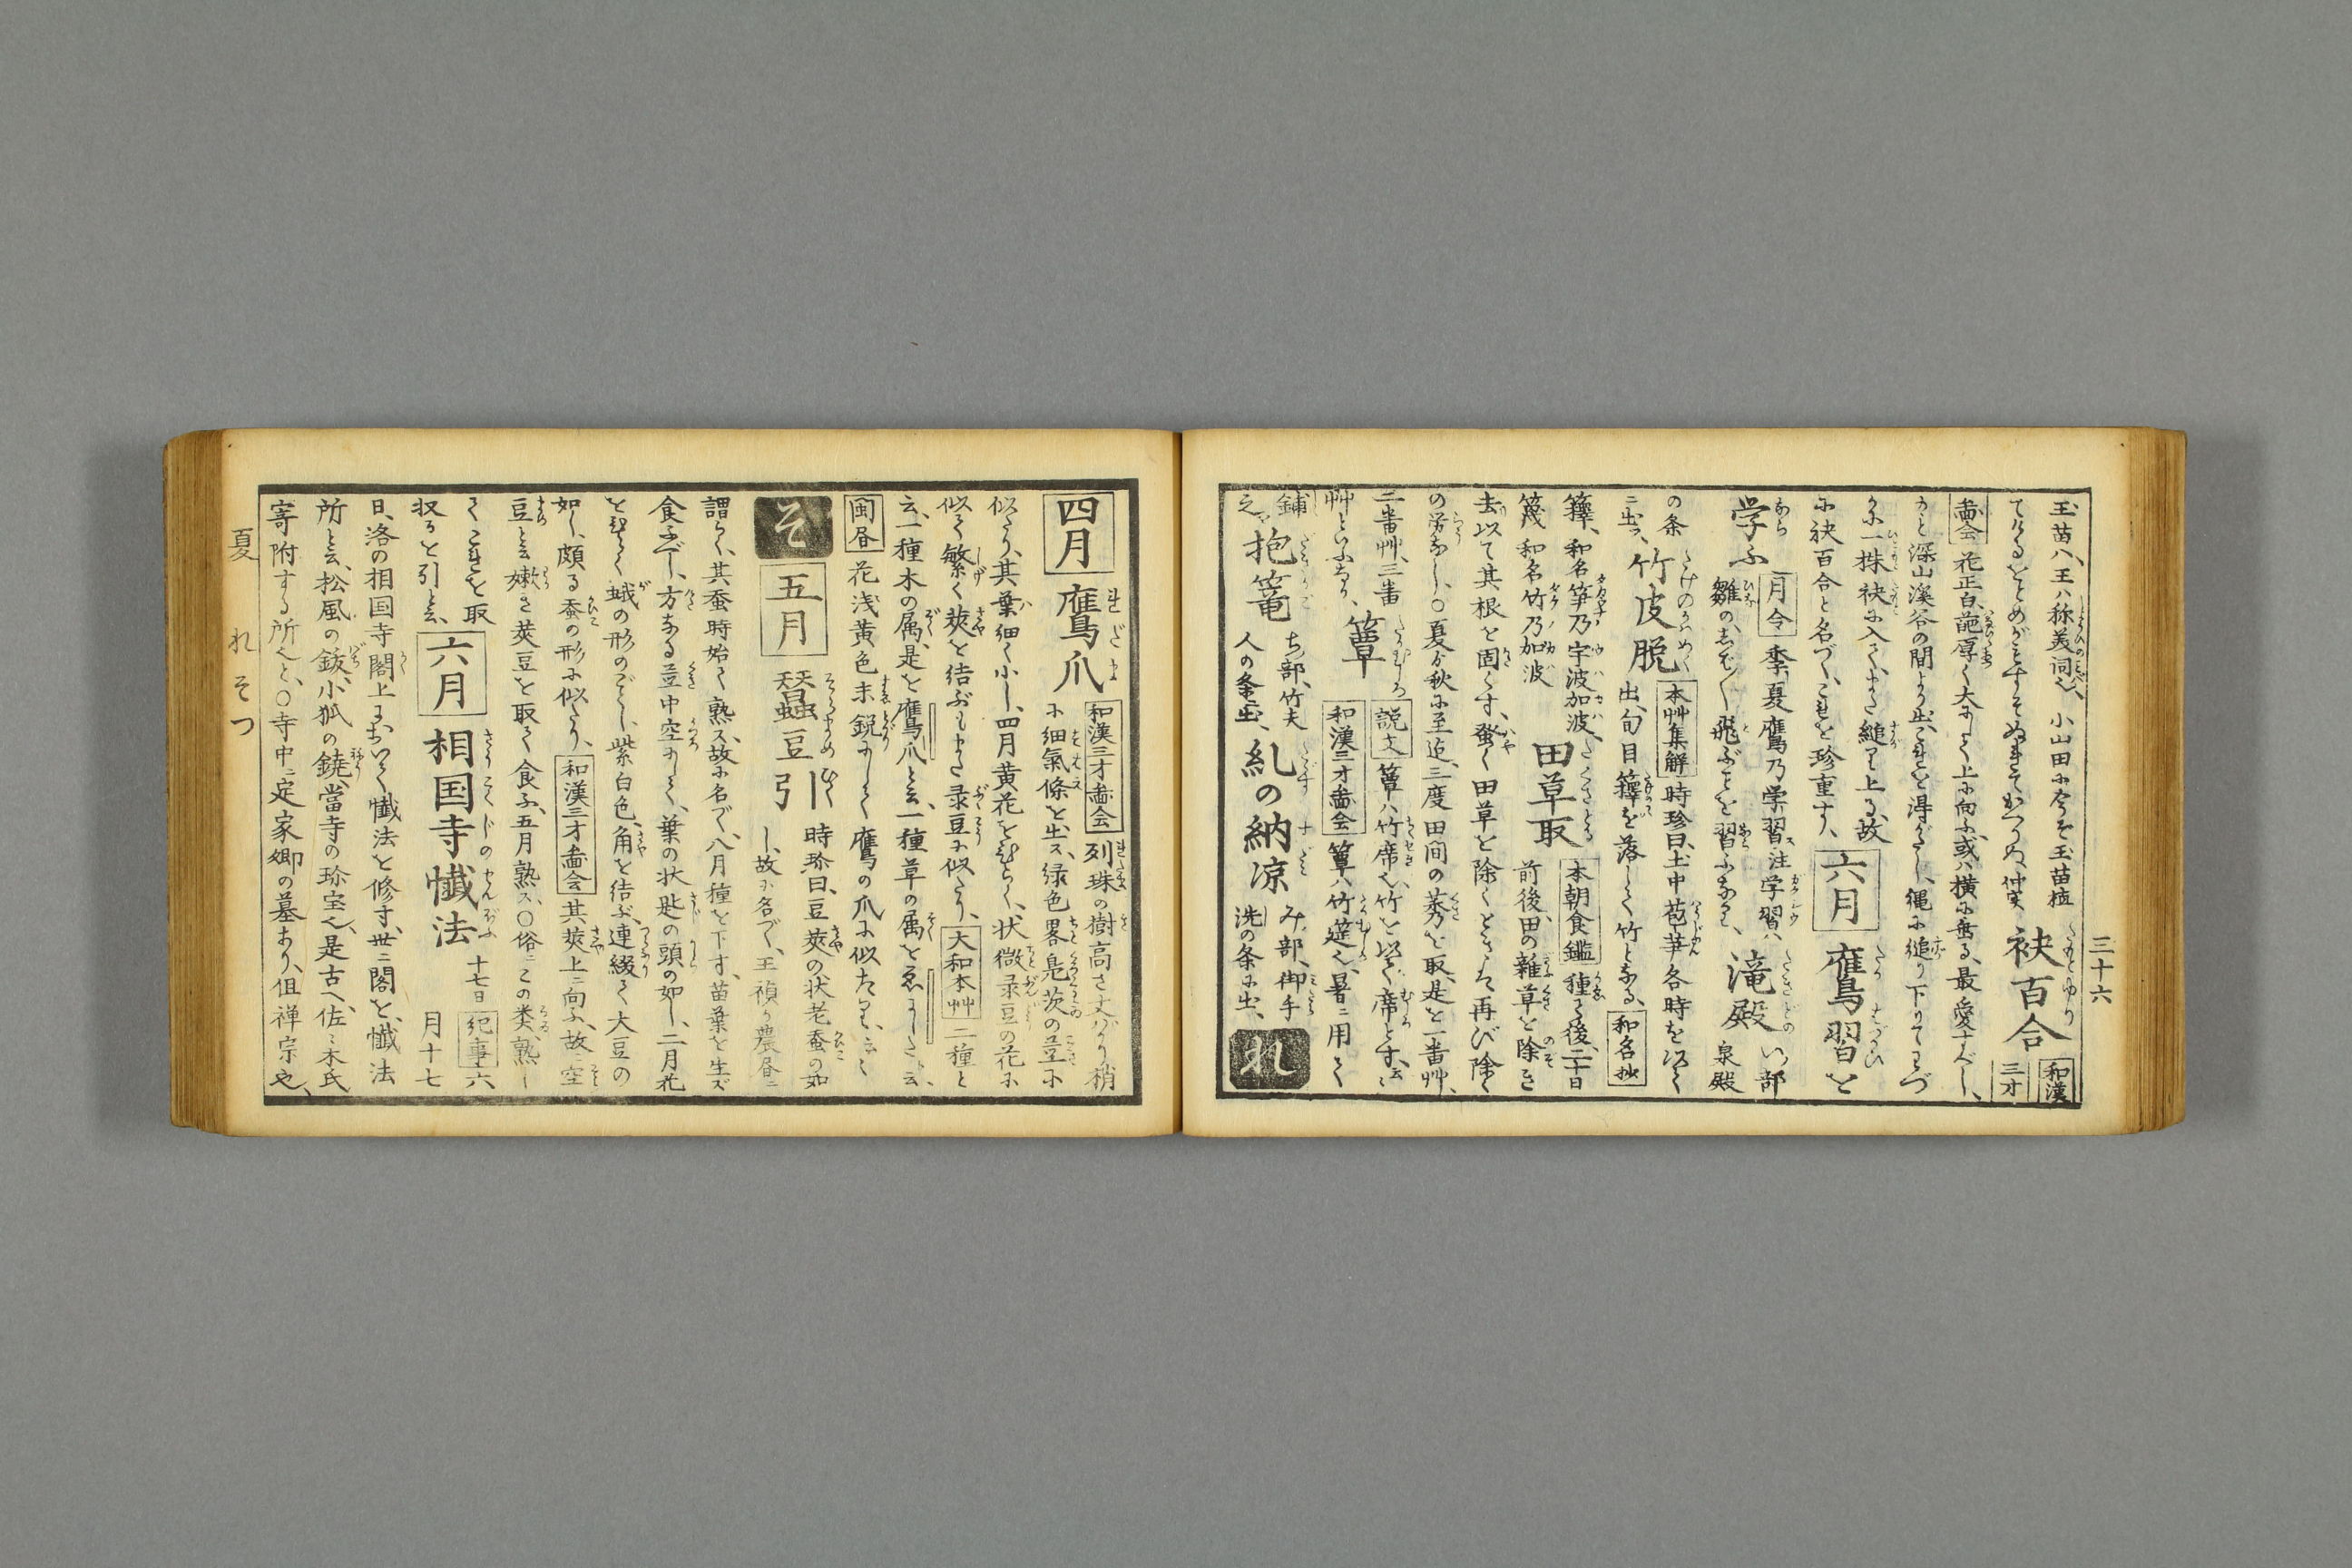 三十六
玉苗八、王ハ称美の詞也、小山田に今ぞ玉苗植
袂百合
和漢
三才
啚会 花正白、葩厚く大にして上に向ふ、或ハ横に垂る、最愛すべし、
深山溪谷の間より出、これを得がたし、縄に縋り下りてわづ
かに一株袂に入て、また縋り上る、故
に袂百合と名づく、これを珍重す、
六月
鷹習を
学ふ
月令 季夏鷹乃学習 注学習ハ
雛のしば〳〵飛ぶことを習ふなり、
滝殿
い部
泉殿
の条
ニ出ツ、
竹皮脱
本艸集解 時珍曰、土中苞芽各時を以て
出、旬日籜を落して竹となる、
和名抄
籜、和名笋乃宇波加波、
篾 和名竹乃加波
田草取
本朝食鑑 種て後、二十日
前後、田の雑草を除き
去、以て其根を固くす、蚤く田草を除くときは、再び除く
の労なし、○夏より秋に至迄、三度田間の莠を取、是を一番艸、
二番艸、三番
艸といふなり、
簟
説文 簟ハ竹席也、竹を以て席とす、云々
和漢三才啚会 簟ハ竹筵也、暑ニ用て
鋪
之ヲ
抱篭
ち部、竹夫
人の条出、
糺の納凉
み部、御手
洗の条に出、
れ
四月
鷹爪
和漢三才啚会 列珠の樹高さ丈ばかり梢
に細氣條を出ス、緑色畧鳧茨の茎に
似たり、其葉細く小し、四月黄花をひらく、状微菉豆の花に
似て繁く莢を結ぶもまた菉豆に似たり、
大和本艸 二種と
云、一種木の属、是を鷹爪と云、一種草の属を
閩昏 花浅黄色末鋭にして鷹の爪に似たり、
そ
五月
蠶豆引
時珍曰、豆莢の状老蚕の如
し、故に名づく、王禎が農書ニ
謂らく、其蚕時始て熟ス、故に名づく、八月種を下す、苗葉を生ズ
食ふべし、方なる茎中空にして、葉の状匙の頭の如し、二月花
をひらく、蛾の形のごとし、紫白色、角を結ぶ、連綴て大豆の
如し、頗る蚕の形に似たり、
和漢三才啚会 其莢上ニ向ふ、故ニ空
豆と云、嫩き莢豆を取て食ふ、五月熟ス、○俗ニこの类、熟し
てこれを取
収るを引と云、
六月
相国寺懺法
十七日 紀事 六
月十七
日、洛の相国寺閣上において懺法を修す、世ニ閣を懺法
所と云、松風の鈸、小狐の鐃、當寺の珍宝也、是古へ、佐々木氏
寄附する所也と、○寺中ニ定家卿の墓あり、但禅宗也、
夏
れ
そ
つ